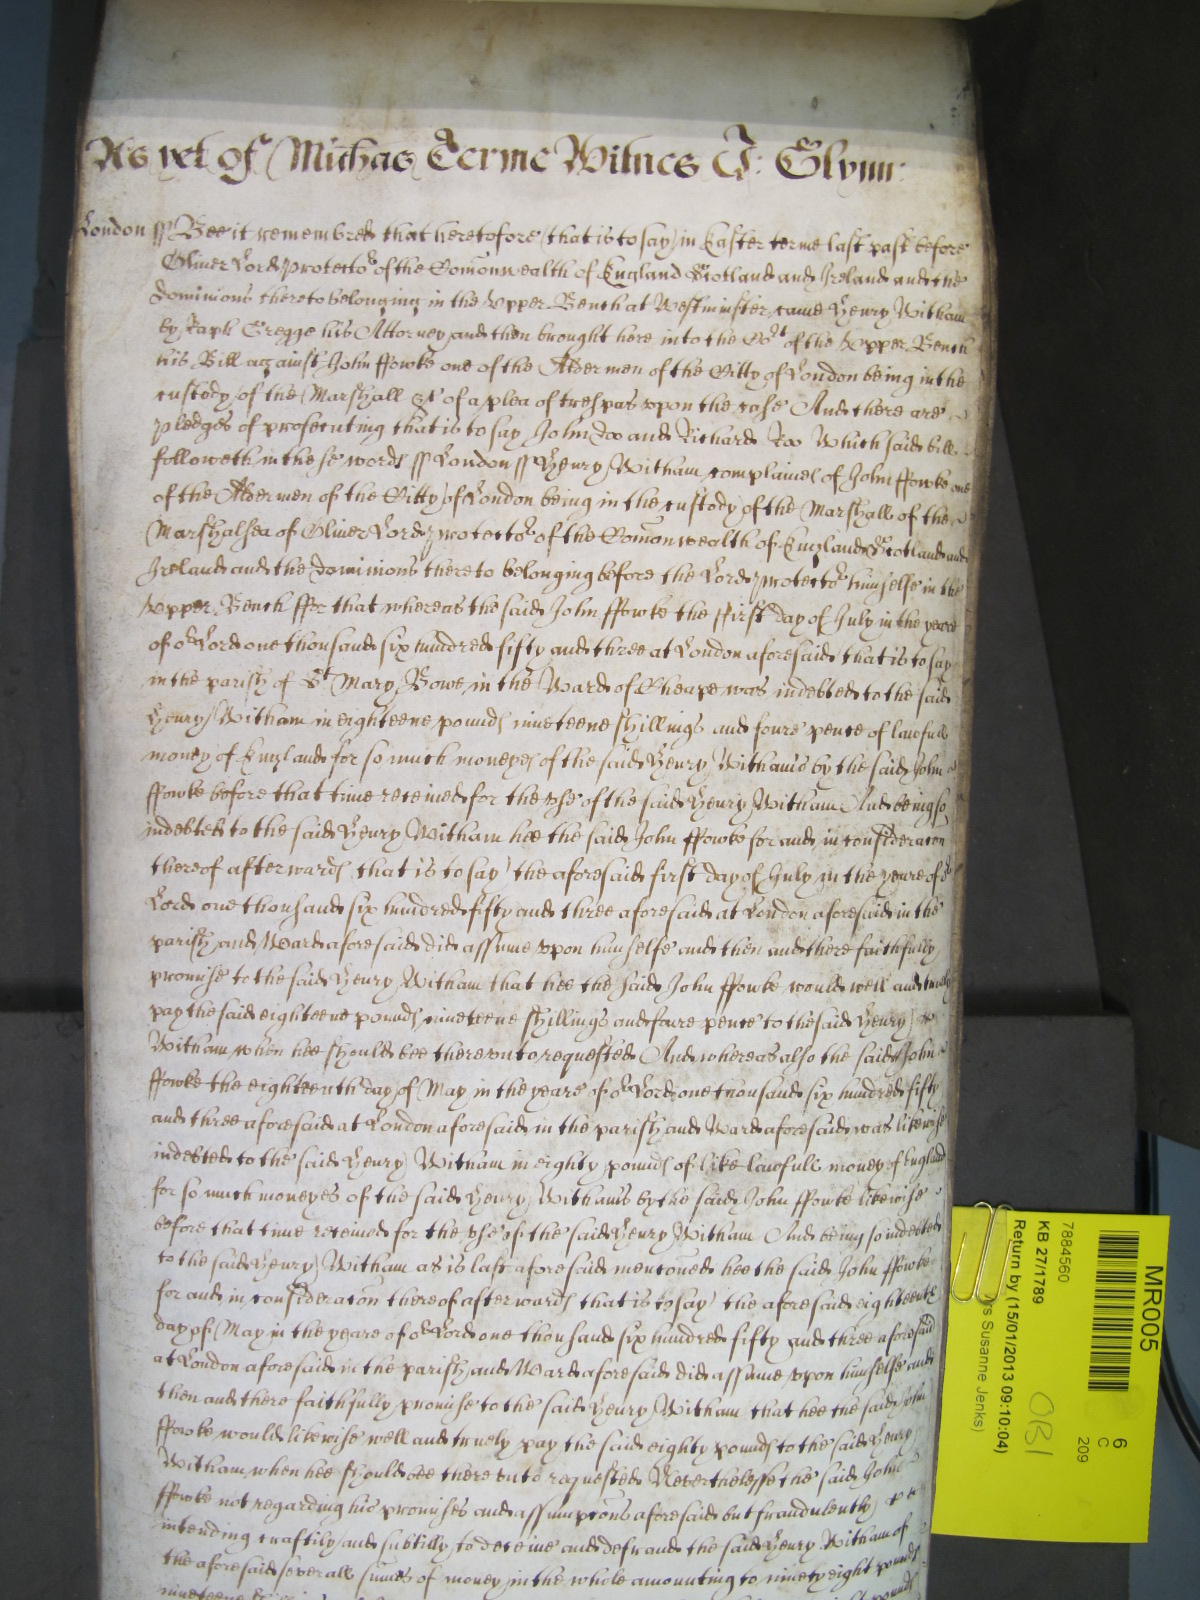 As yet of Michas Terme Witnes J: Glynn:
London ss Bee it remembred that heretofore (that is to say) in Easter terme last past before
Oliver Lord protector of the Comonwealth of England Scotland and Ireland and the
dominions thereto belonging in the Upper Bench at Westminster came Henry Witham
by Raph Gregge his Attorney and then brought here into the Cort of the Upper Bench
his Bill against John ffowke one of the Aldermen of the Citty of London being in the
custody of the Marshall &c of a plea of trespas upon the case And there are
pledges of prosecuting that is to say John Doo and Richard Roo Which said bill
followeth in these words ss London ss Henry Witham complaines of John ffowke one
of the Aldermen of the Citty of London being in the custody of the Marshall of the
Marshalsea of Oliver Lord protector of the Comonwealth of England Scotland and
Ireland and the dominions thereto belonging before the Lord protector himselfe in the
Upper Bench ffor that whereas the said John ffowke the first day of July in the yeare
of or Lord one thousand six hundred fifty and three at London aforesaid that is to say
in the parish of St Mary Bowe in the Ward of Cheape was indebted to the said
Henry Witham in eighteene pounds nineteene shillings and foure pence of lawfull
money of England for so much moneyes of the said Henry Withams by the said John
ffowke before that time received for the use of the said Henry Witham And being so
indebted to the said Henry Witham hee the said John ffowke for and in consideracon
thereof afterwards that is to say the aforesaid first day of July in the yeare of or
Lord one thousand six hundred fifty and three aforesaid at London aforesaid in the
parish and Ward aforesaid did assume upon himselfe and then and there faithfully
promise to the said Henry Witham that hee the said John ffowke would well and truely
pay the said eighteene pounds nineteene shillings and foure pence to the said Henry
Witham when hee should bee thereunto requested And whereas also the said John
ffowke the eighteenth day of May in the yeare of or Lord one thousand six hundred fifty
and three aforesaid at London aforesaid in the parish and Ward aforesaid was likewise
indebted to the said Henry Witham in eighty pounds of like lawfull money of England
for so much moneyes of the said Henry Withams by the said John ffowke likewise
before that time received for the use of the said Henry Witham And being so indebted
to the said Henry Witham as is last aforesaid mencioned hee the said John ffowke
for and in consideracon thereof afterwards that is to say the aforesaid eighteenth
day of May in the yeare of or Lord one thousand six hundred fifty and three aforesaid
at London aforesaid in the parish and Ward aforesaid did assume upon himselfe and
then and there faithfully promise to the said Henry Witham that hee the said John
ffowke would likewise well and truely pay the said eighty pounds to the said Henry
Witham when hee should bee thereunto requested Neverthelesse the said John
ffowke not regarding his promises and assumpcons aforesaid but fraudulently
intending craftily and subtilly to deceive and defraud the said Henry Witham of
the aforesaid severall sumes of money in the whole amounting to ninety eight pounds
nineteene
MR005
7884560
KB 27/1789
Return by (15/01/2013 09:10:04)
rs Susanne Jenks)
6
C
209